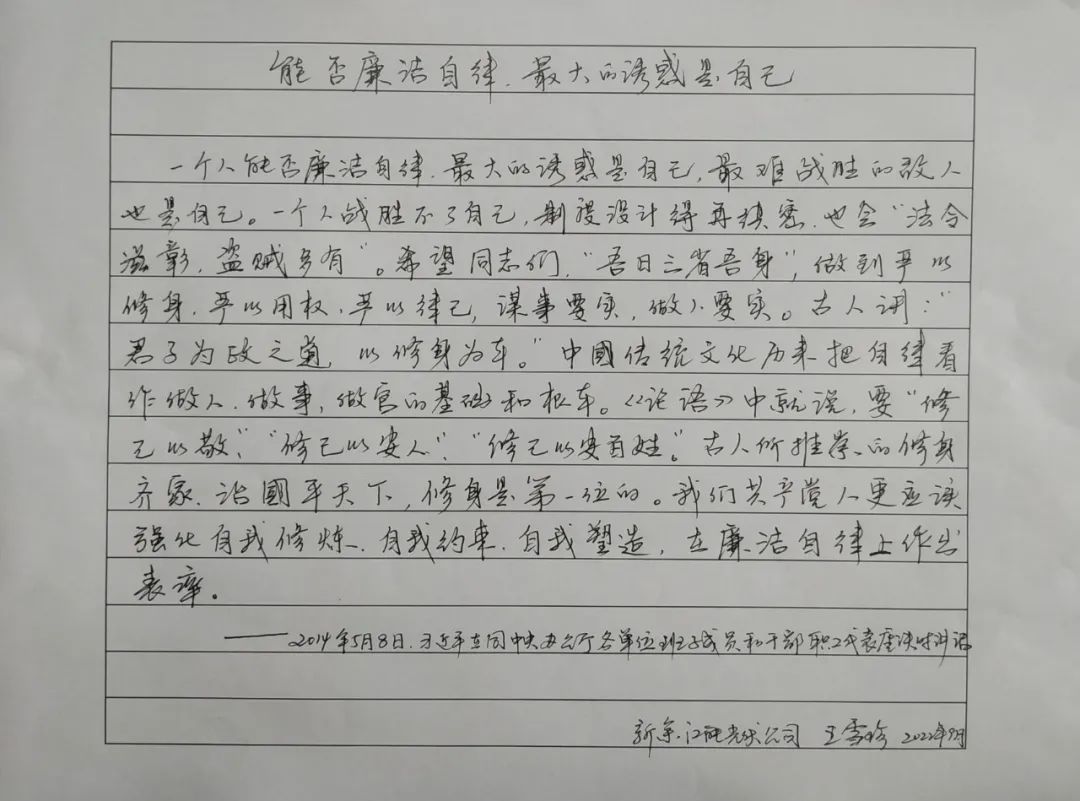 能否廉洁自律,最大的诱惑是自己
一个人能否廉洁自律,最大的诱惑是自己,最难战胜的敌人
也是自己。一个人战胜不了自己,制度设计得再缜密,也会“法令
滋彰,盗贼多有”。希望同志们,“吾日三省吾身”,做到严以
修身、严以用权、严以律己,谋事要实,做人要实。古人讲:“
君子为政之道,以修身为本。”中國传统文化历来把自律看
作做人、做事,做官的基础和根本。《论语》中就说,要“修
己以敬”、“修己以安人”、“修己以安百姓”。古人所推崇的修身
齐家、治國平天下,修身是第一位的。我们共产党人更应该
强化自我修炼、自我约束、自我塑造,在廉洁自律上作出
表率。
——2014年5月8日,习近平在同中央办公厅各单位班子成员和干部职工代表座谈时讲话
公司 王雪珍 2022年9月